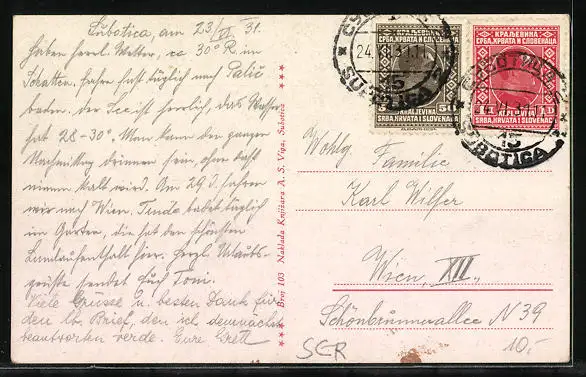 Subotica, am 23/VI. 31.
Haben herrl. Wetter, ca 30° R. im
Schatten, fahren fast täglich nach Palić
baden. Der See ist herrlich, das Wasser
hat 28-30°. Man kann den ganzen
Nachmittag drinnen sein, ohne daß
einem kalt wird. Am 29. fahren
wir nach Wien. badet täglich
im Garten, die hat den schönsten
hier. Herzl. Urlaubs-
grüße sendet Euch Toni.
Viele Grüsse u. besten Dank für
den lb. Brief, den ich demnächst
beantworten werde. Eure Grett
*** Broj 103 Naklada Knjižara A. S. Víga, Subotica ***
КРАЉЕВИНА
СРБА, ХРВАТА И СЛОВЕНАЦА
KRALJEVINA
SRBA, HRVATA I SLOVENACA
КРАЉЕВИНА
СРБА, ХРВАТА И СЛОВЕНАЦА
1 D
KRALJEVINA
SRBA, HRVATA I SLOVENACA
СУБОТИЦА
24. VI. 31. 11
15
SUBOTICA
СУБОТИЦА
15
SUBOTICA
Wohlg. Familie
Karl Wilfer
Wien, XII.,
Schönbrunnerallee N 39
SER
10,-